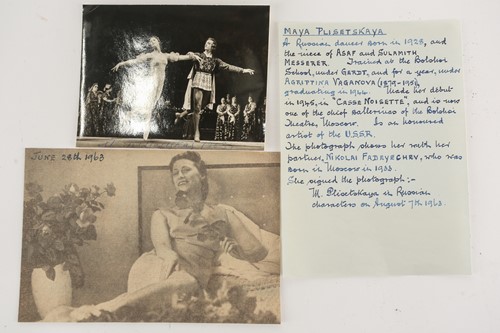 MAYA PLISETSKAYA
A Russian dancer born in 1925, and
the niece of ASAF and SULAMITH
MESSERER. Trained at the Bolshoi
School, under GERDT, and for a year, under
AGRIPPINA VAGANOVA (1879-1951),
graduating in 1944. Made her debut
in 1945, in "CASSE NOISETTE", and is now
one of the chief ballerinas of the Bolshoi
Theatre, Moscow. Is an honoured
artist of the U.S.S.R.
The photograph shows her with her
partner, NIKOLAI FADEYECHEV, who was
born in Moscow in 1933.
She signed the photograph :-
M. Plisetskaya in Russian
characters on August 7th 1963.
JUNE 28th 1963